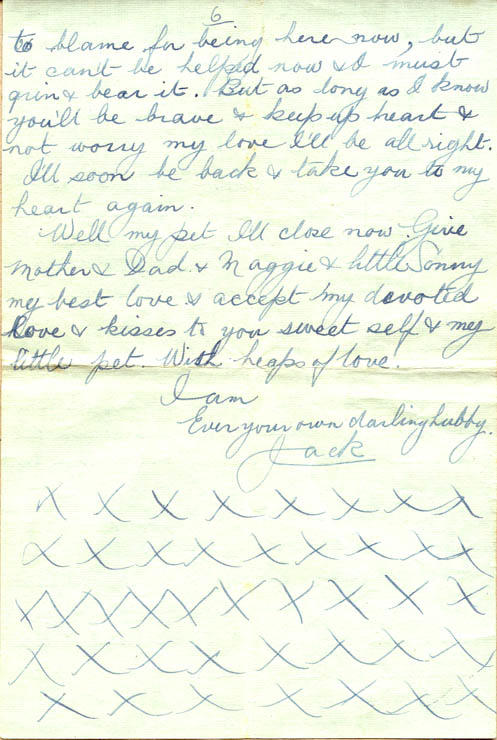 6
to blame for being here now, but
it can't be helped now & I must
grin & bear it. But as long as I know
you'll be brave & keep up heart &
not worry my love I'll be all right.
I'll soon be back & take you to my
heart again.
Well my pet I'll close now. Give
Mother & Dad & Maggie & little Sonny
my best love & accept my devoted
love & kisses to you sweet self & my
little pet. With heaps of love.
I am
Ever your own darling hubby.
Jack
X X X X X X X X
X X X X X X X X
X X X X X X X X X X
X X X X X X X X
X X X X X X X X